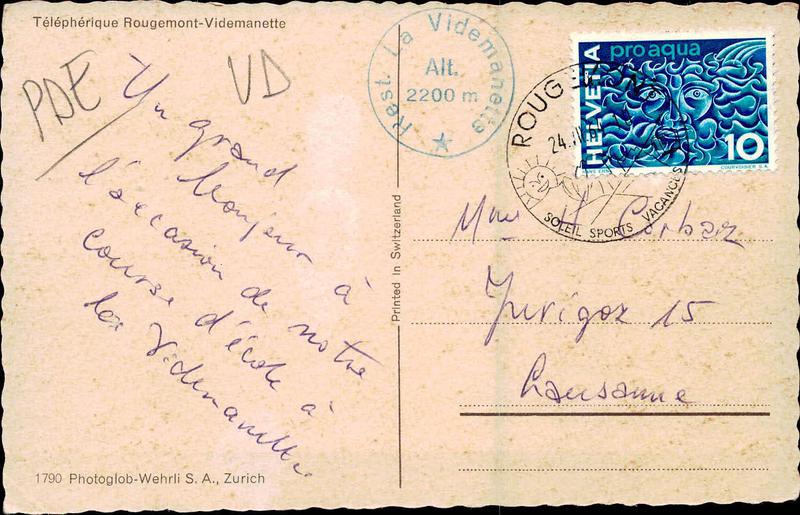 Téléphérique Rougemont-Videmanette
PDE
VD
Un grand
bonjour à
l'occasion de notre
course d'école à
la Videmanette.
Rest. La Videmanette
Alt.
2200 m
ROUGEMONT
24.
SOLEIL SPORTS VACANCES
HELVETIA
pro aqua
10
HANS ERNI
COURVOISIER S.A.
Printed in Switzerland
Mme H. Corbaz
15
Lausanne
1790 Photoglob-Wehrli S. A., Zurich